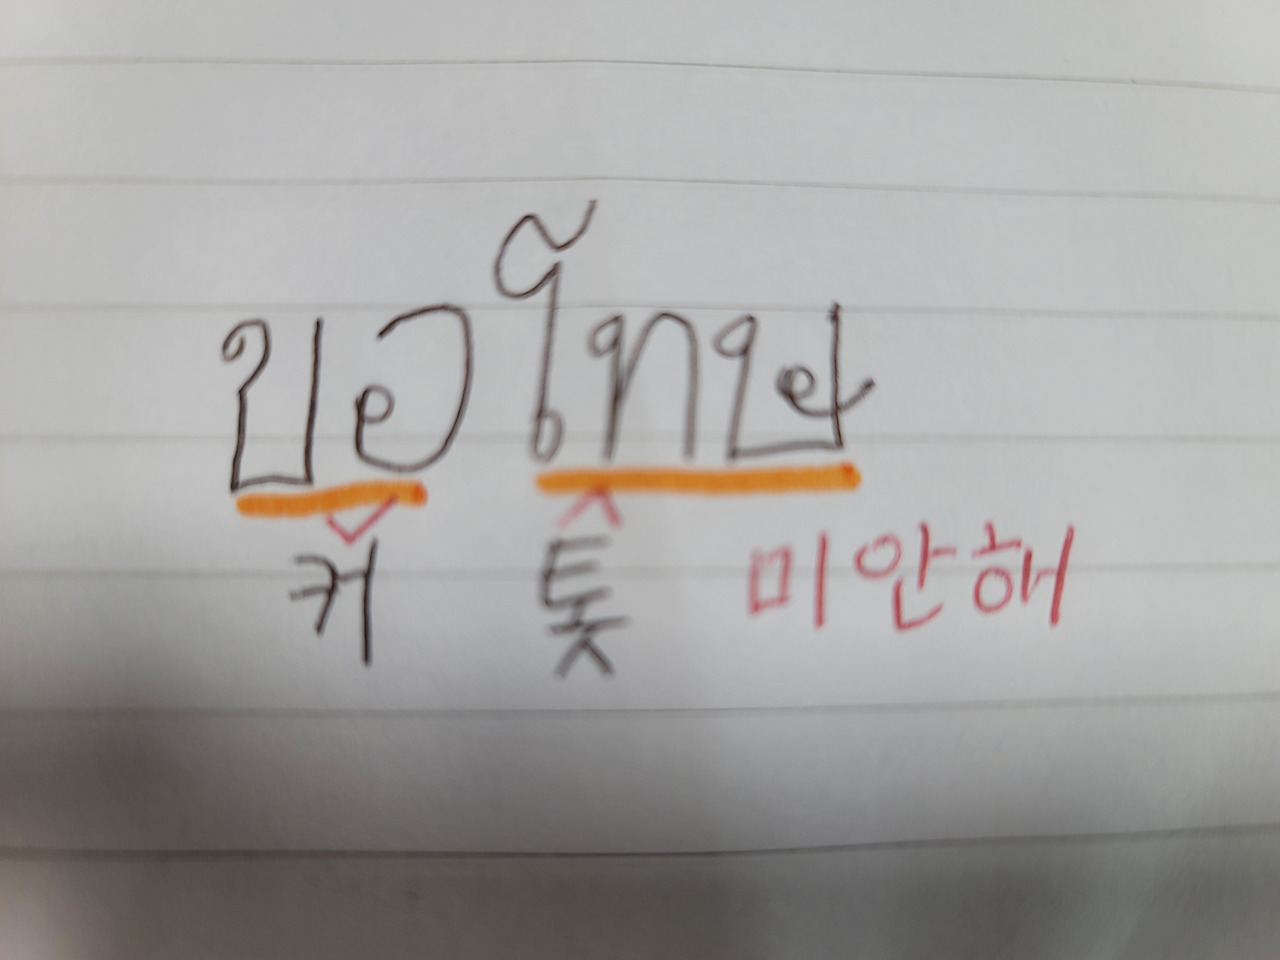 ขอโทษ
커 톳 미안해